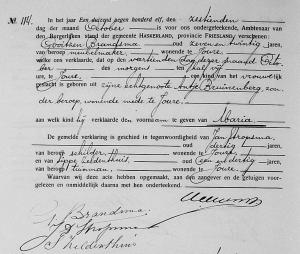 No. 114.
In het jaar Een duizend negen honderd elf, den zestienden
dag der maand October is voor ons ondergeteekende, Ambtenaar van
den Burgerlijken stand der gemeente HASKERLAND, provincie FRIESLAND, verschenen:
Brandsma oud zeven en twintig jaren,
van beroep meubelmaker, wonende te Joure
welke ons verklaarde, dat op den dag dezer maand Octo-
ber des morgens te half vijf ure,
te Joure een kind van het vrouwelijk
geslacht is geboren uit zijne echtgenoote Antje Bruinenberg, zon-
der beroep, wonende mede te Joure.
aan welk kind hij verklaarde den voornaam te geven van Maria.
De gemelde verklaring is geschied in tegenwoordigheid van Jan Stropsma,
oud dertig jaren,
van beroep schilder, wonende te Joure
en van Zeldenthuis, oud een en dertig jaren,
van beroep tuinman, wonende te Joure.
Waarvan wij deze akte hebben opgemaakt, die aan den aangever en de getuigen voor-
gelezen en onmiddellijk daarna met hen onderteekend.
Brandsma
J. Stropsma
T. Zeldenthuis